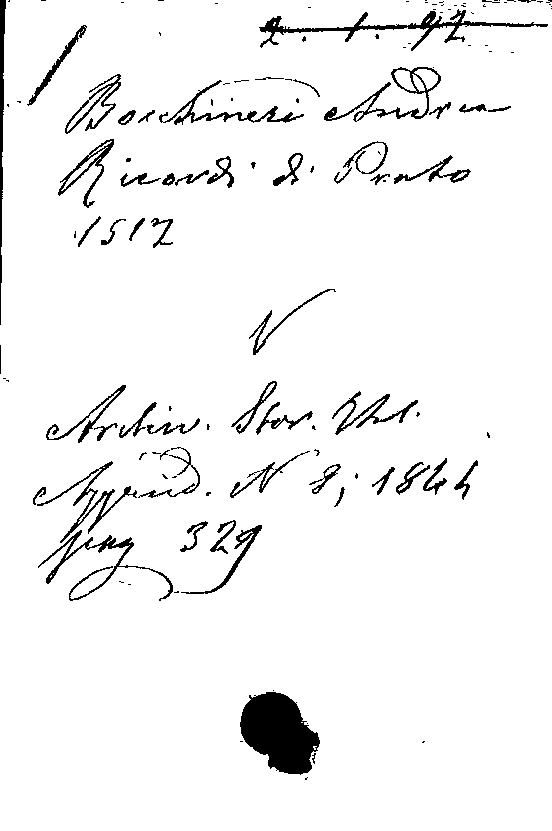 2. 1. 97
Bocchineri Andrea
Ricordi di Prato
1512
V
Archiv. Stor. Ital.
Append. N 8; 1844
pag 329